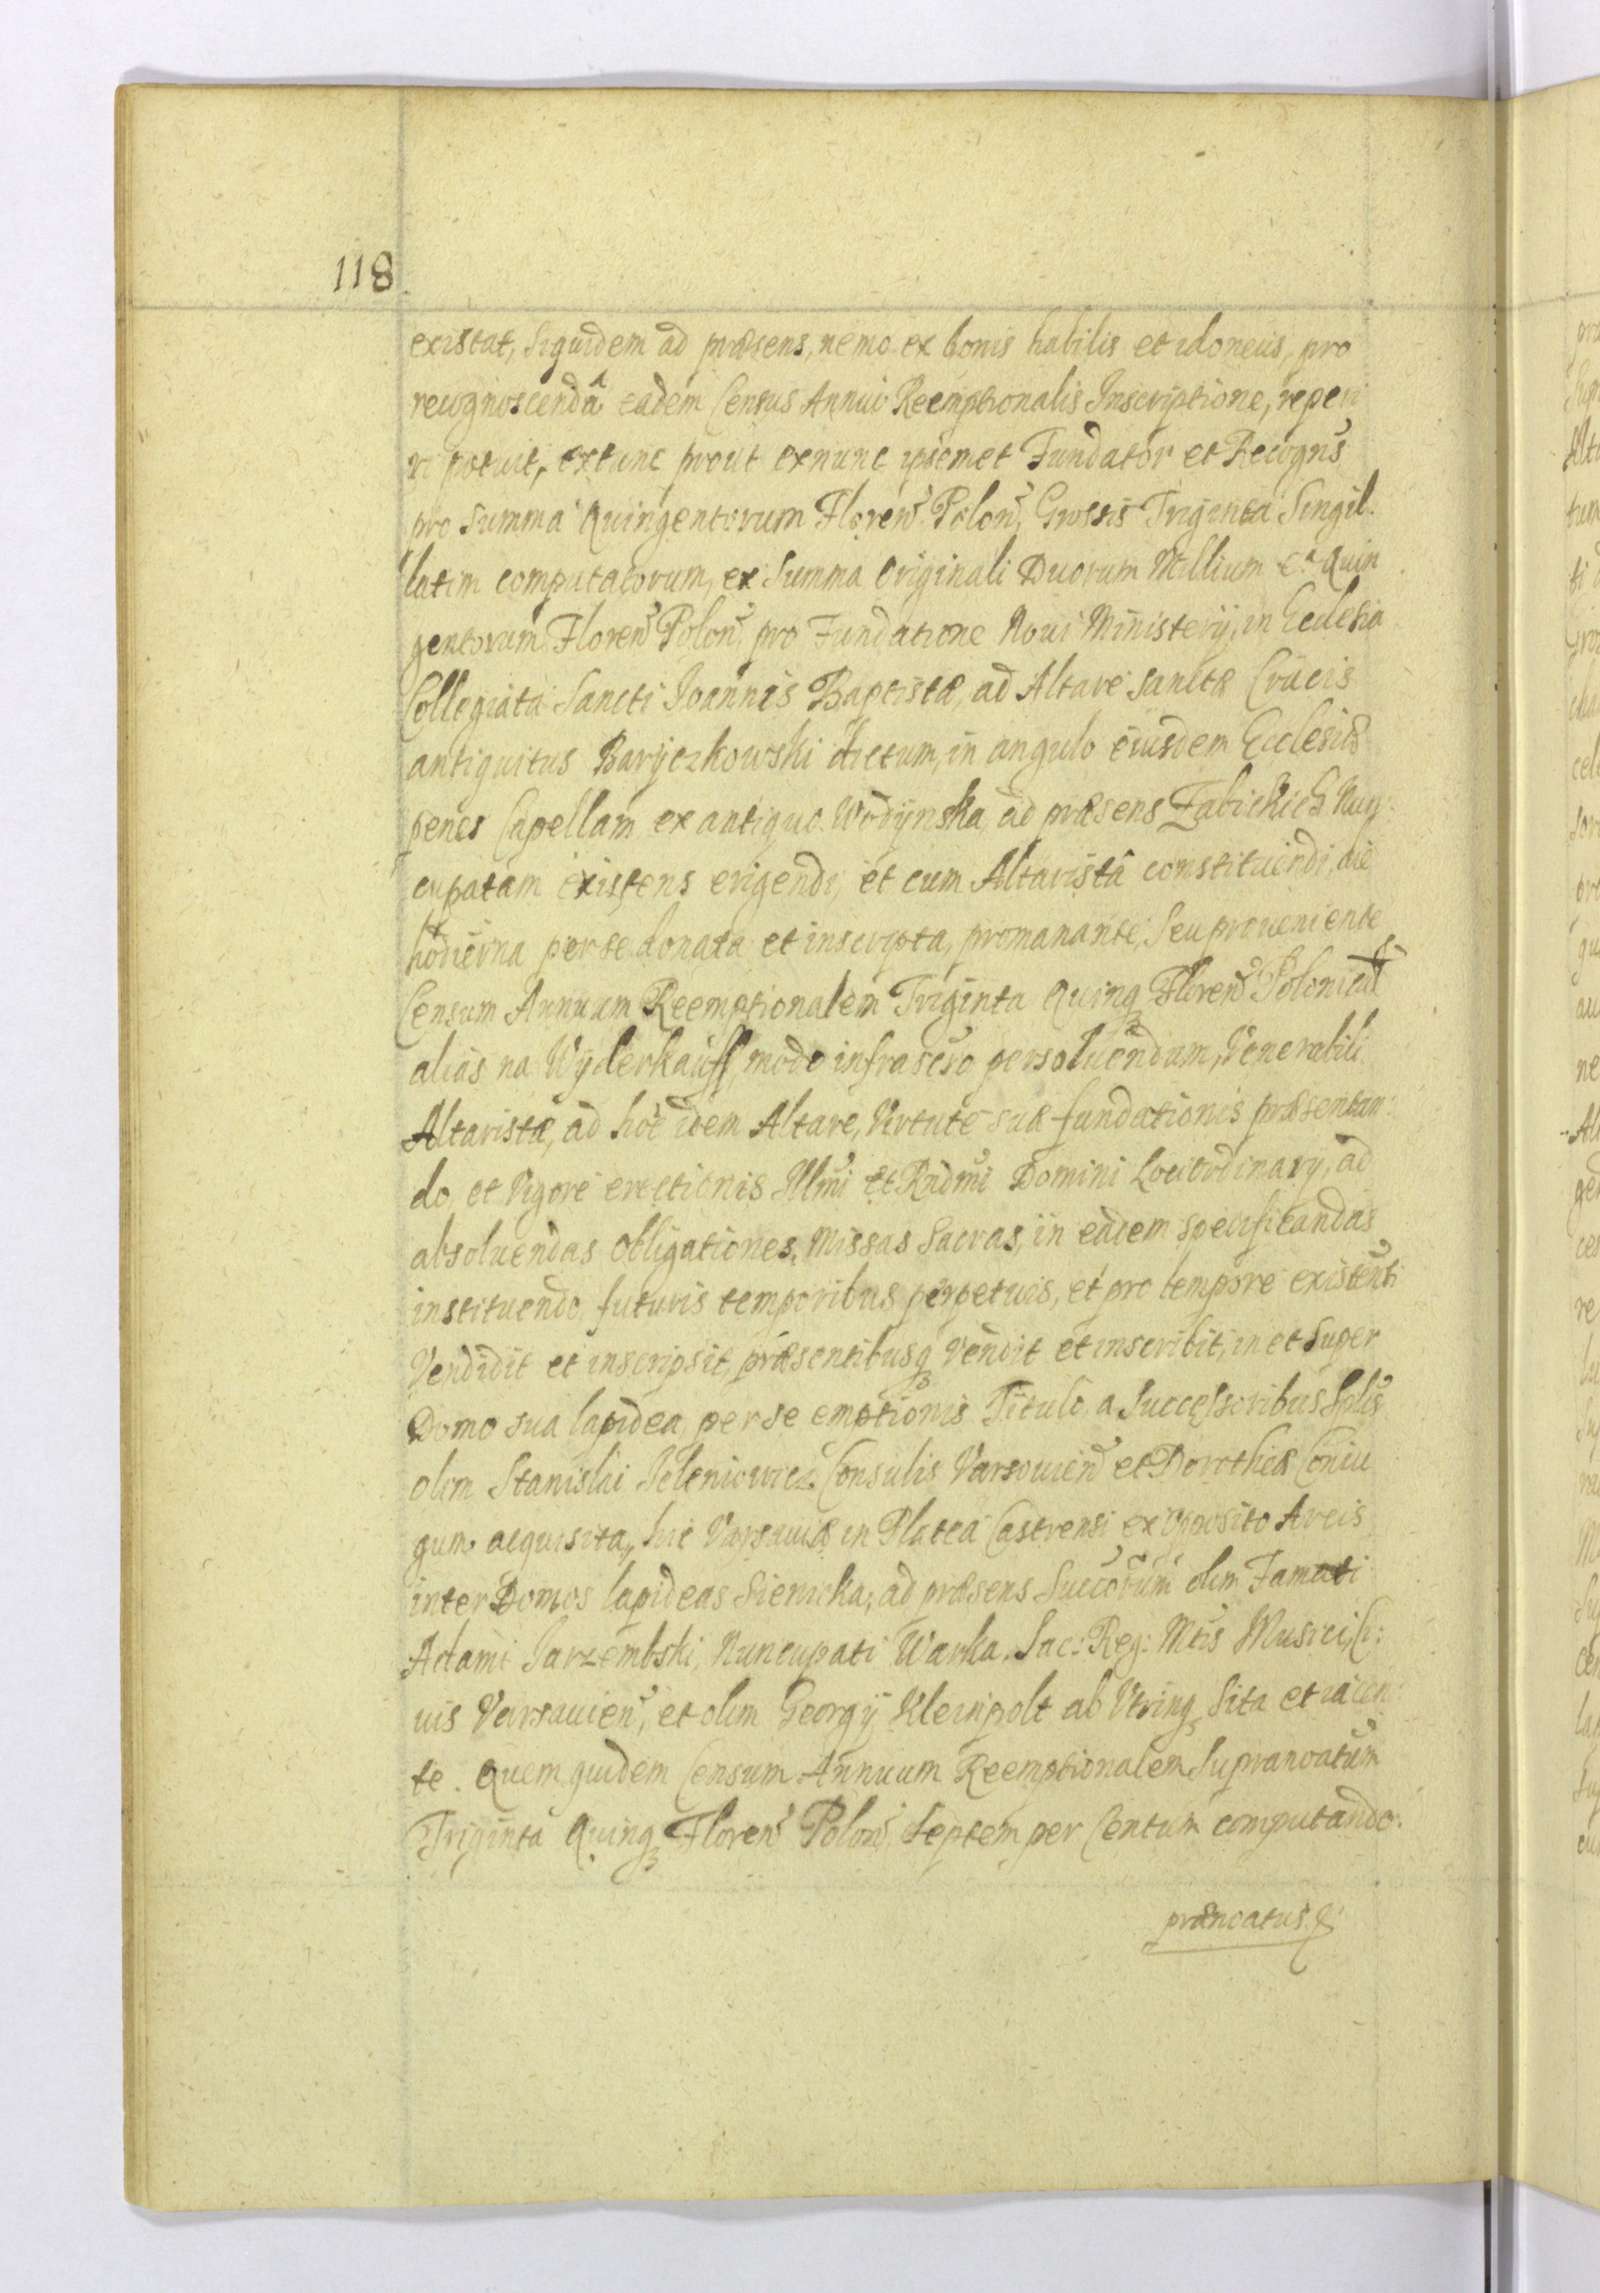 118
existat, Siquidem ad præsens, nemo ex bonis habilis et idoneus, pro
recognoscendâ eadem Census Annui Reemptionalis Inscriptione, reperi
ri potuit, extunc prout exnunc ipsemet Fundator et Recogns
pro Summa Quingentorum Floren Polon, Grossis Triginta Singil
latim computatorum, ex Summa Originali Duorum Millium et Quin
gentorum Floren Polon, pro Fundatione Noui Ministerij, in Ecclesia
Collegiata Sancti Joannis Baptistæ, ad Altare Sanctæ Crucis
antiquitus Baryczkowski dictum, in angulo eiusdem Ecclesiæ
penes Capellam ex antiquo Wodÿnska, ad præsens Zabickich Nun:
cupatam existens erigendi, et cum Altaristâ constituendi, die
hodierna per se donata et inscripta, promanante, Seu proueniente
Censum Annuum Reemptionalem Triginta Quinq Floren Polonical
alias na Wÿderkauff, modo infrascro persoluendum, Venerabili
Altaristæ, ad hoc idem Altare, Virtute suæ fundationis præsentan:
do et Vigore erectionis Illmi et Rndmi Domini Lociordinarij, ad
absoluendas Obligationes, Missas Sacras, in eadem specificandas
instituendo, futuris temporibus perpetuis, et pro tempore existenti
Vendidit et inscripsit, præsentibusq Vendit et inscribit, in et Super
Domo sua lapidea, per se emptionis Titulo, a Successoribus Splis
olim Stanislai Jeleniowicz Consulis Varsouien et Dorotheæ Coniu
gum acquisita, hic Varsauiæ in Platea Castrensi ex opposito Arcis
inter Domos lapideas Sienicka, ad præsens Succorum olim Famati
Adami Jarzembski, Nuncupati Warka. Sac: Reg: Mtis Musici, Ci:
uis Varsauien, et olim Georgÿ Kleinpolt ab Vtrinq Sita et iacen:
te. Quem quidem Censum Annuum Reemptionalem Supranoatum
Triginta Quinq Floren Polon, Septem per Centum computando.
prænoatus &